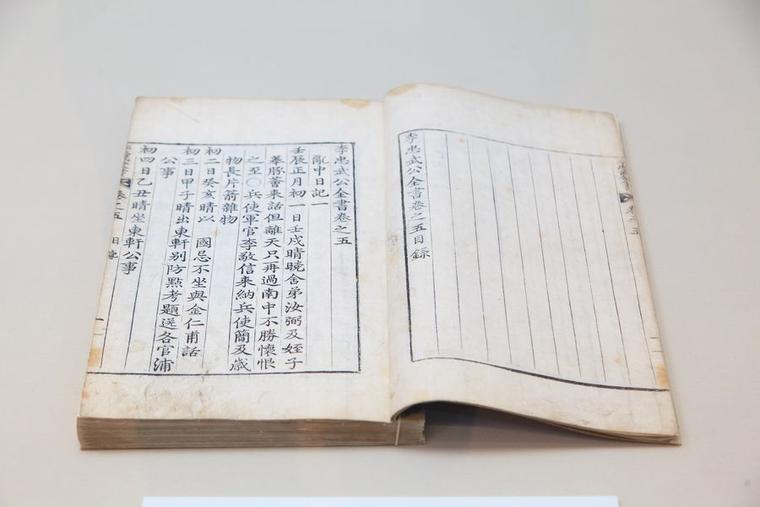 李忠武公全書卷之五目錄
李忠武公全書卷之五
亂中日記一
壬辰正月初一日壬戌晴曉舍弟汝弼及姪子
菶豚薈來話但離天只再過南中不勝懷恨
之至○兵使軍官李敬信來納兵使簡及歲
物長片箭雜物
初二日癸亥晴以 國忌不坐與金仁甫話
初三日甲子晴出東軒別防點考題送各官浦
公事
初四日乙丑晴坐東軒公事
卷之五